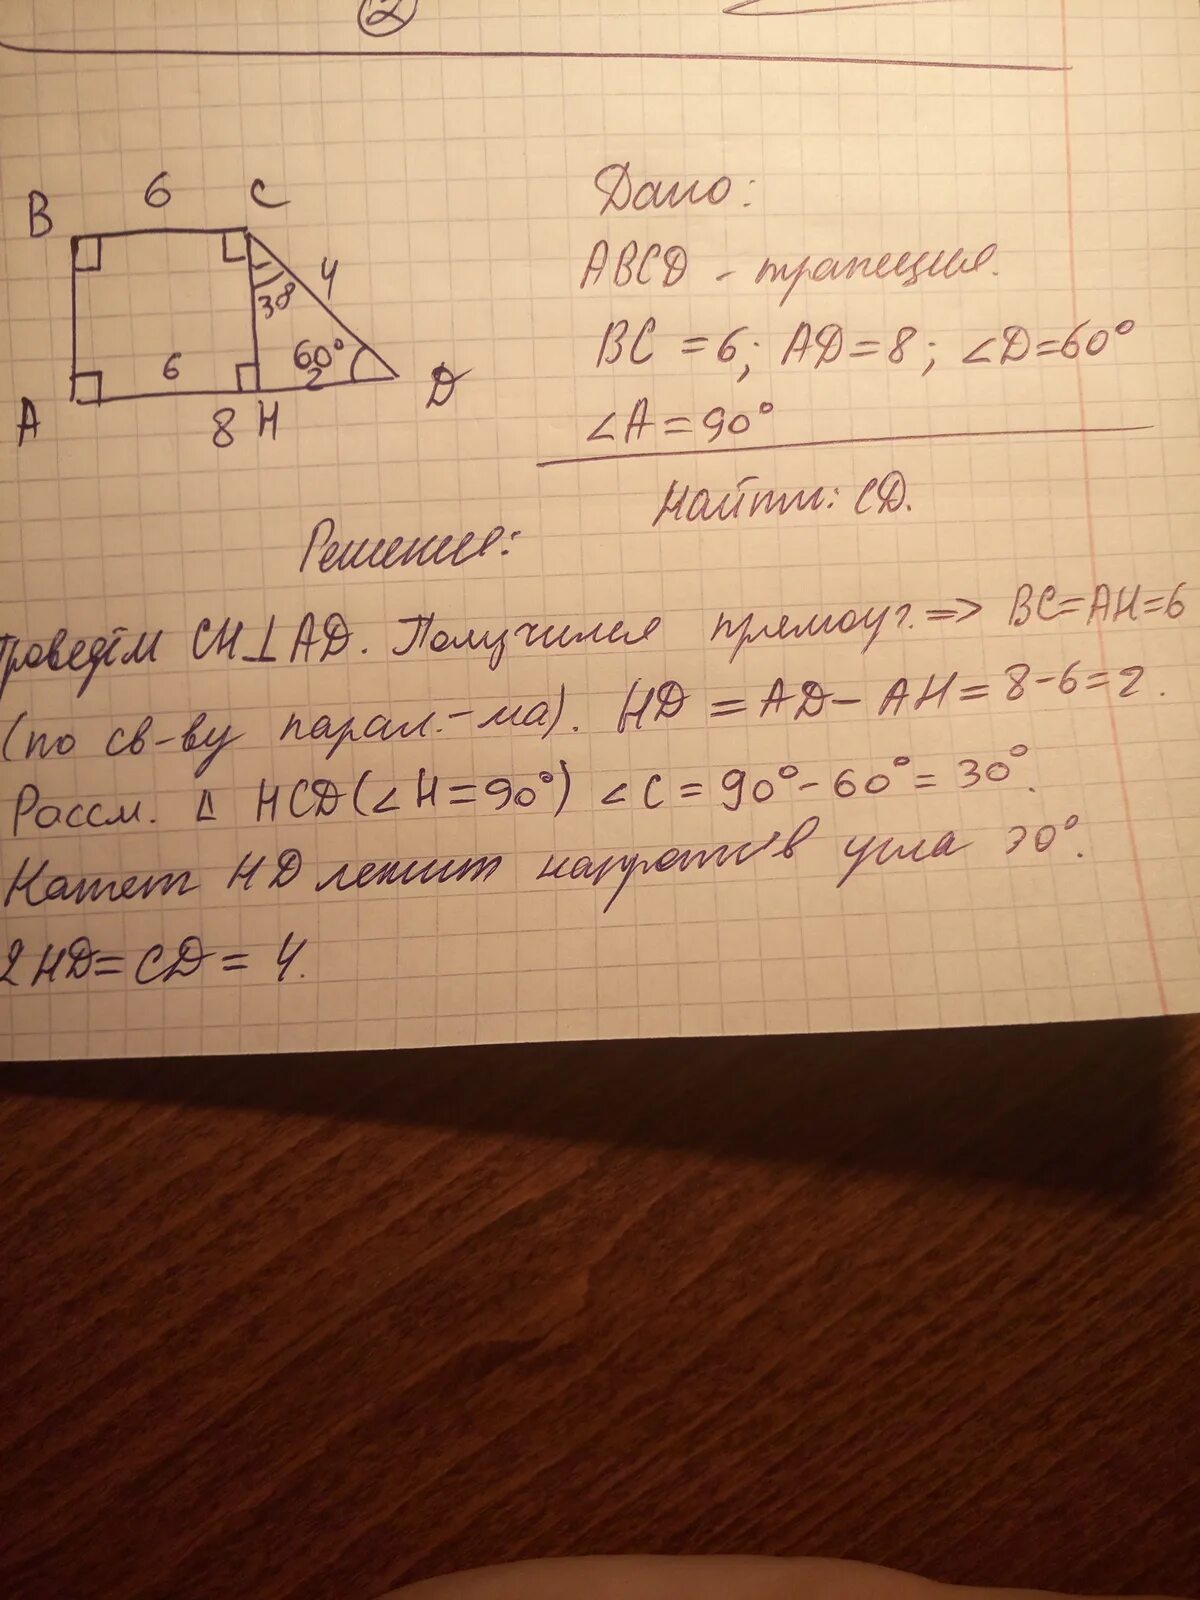 2
B 6 C
4
30
6 60°
2
A 8 H D
Дано:
ABCD - трапеция.
BC = 6; AD = 8; ∠D = 60°
∠A = 90°
Найти: CD.
Решение:
Проведём CH⊥AD. Получился прямоуг. => BC=AH=6
(по св-ву парал.-ма). HD = AD - AH = 8-6=2.
Рассм. Δ HCD (∠H=90°) ∠C = 90°-60°= 30°.
Катет HD лежит напротив угла 30°.
2HD = CD = 4.